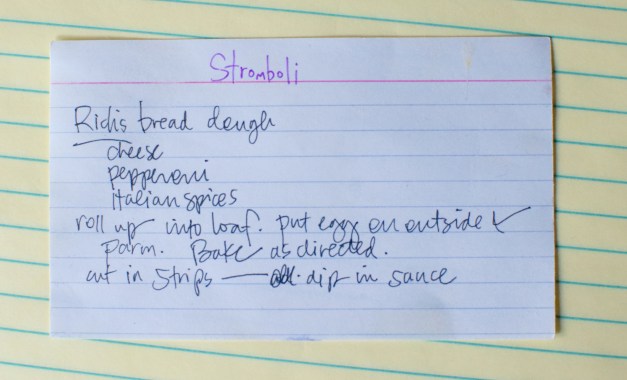 Stromboli
Rich's bread dough
cheese
pepperoni
italian spices
roll up into loaf. put egg on outside &
parm. Bake as directed.
cut in strips — dip in sauce